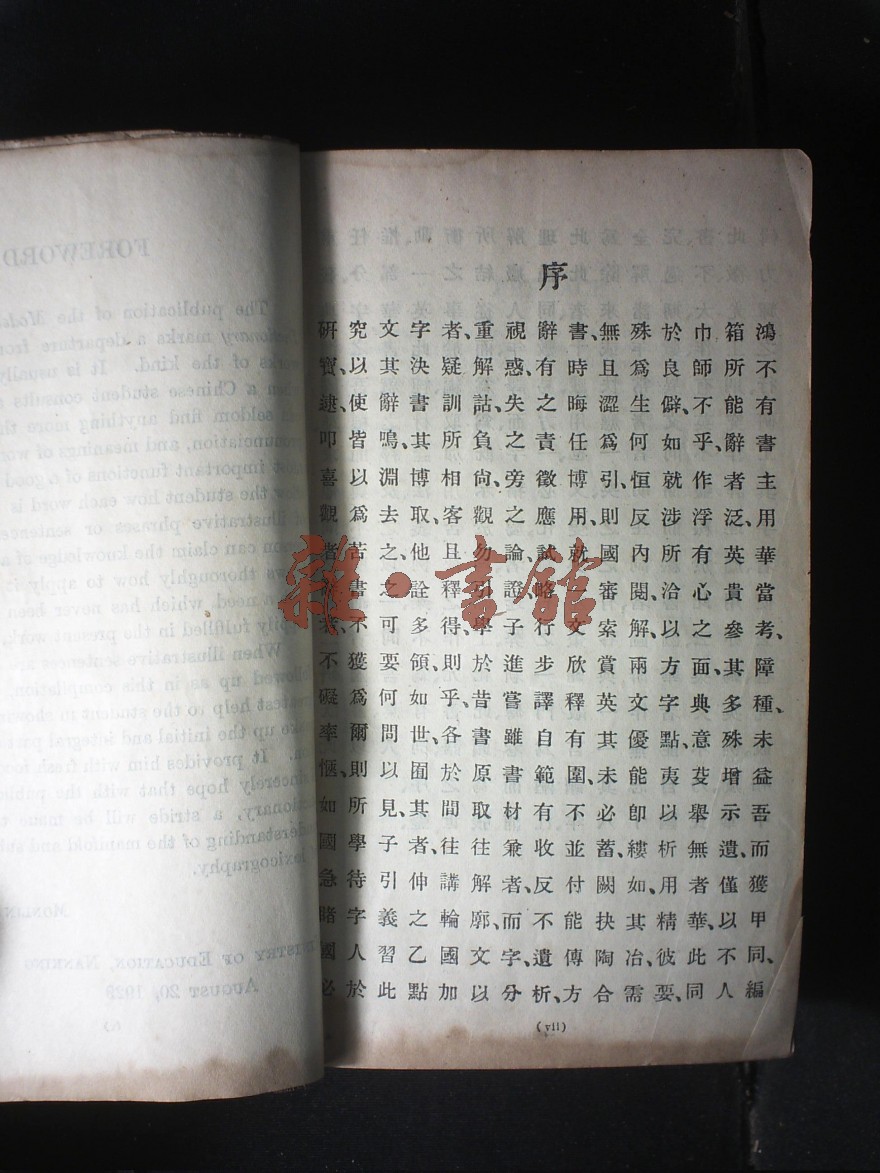 FOREWORD
The publication of the Mode
marks a departure from
of the kind. It is usually
a Chinese student consults
seldom find anything more
and meanings of
important functions of a good
the student how each word is
illustrative phrases or sentences
can claim the knowledge of
thoroughly how to apply
need, which has never been
fulfilled in the present work.
When illustrative sentences are
up as in this compilation,
help to the student in
up the initial and integral
It provides him with fresh
hope that with the
a stride will be made
of the manifold and
lexicography.
OF EDUCATION, NANKING
AUGUST 20, 1929
序
研究文字者、重視辭書、無殊於巾箱鴻
寶、以其決疑解惑、有時且爲良師所不
逮、使辭書訓詁、失之晦澀生僻、不能有
叩皆鳴、其所負之責任爲何如乎、辭書
喜以淵博相尙、旁徵博引、恒就作者主
觀爲去取、客觀之應用、則反涉浮泛、用
者苦之、他且勿論、試就國內所有英華
書之詮釋引證、略一審閱、洽心貴當
者、不可多得、學子行文索解、以之參考、
不獲要領、則於進步欣賞兩方面、其障
礙爲何如乎、昔嘗譯釋英文字典多種、
率爾問世、各書雖自有其優點、意殊未
愜、則以囿於原書範圍、未能夷芟增益
如所見、其間取材有不必卽以舉示吾
國學子者、往往兼收並蓄、縷析無遺、而
急待引伸講解者、反付闕如、用者僅獲
睹字義之輪廓、而不能抉其精華、以甲
國人習乙國文字、遺傳陶冶、彼此不同、
必於此點加以分析、方合需要、同人編
(vii)
雜·書館